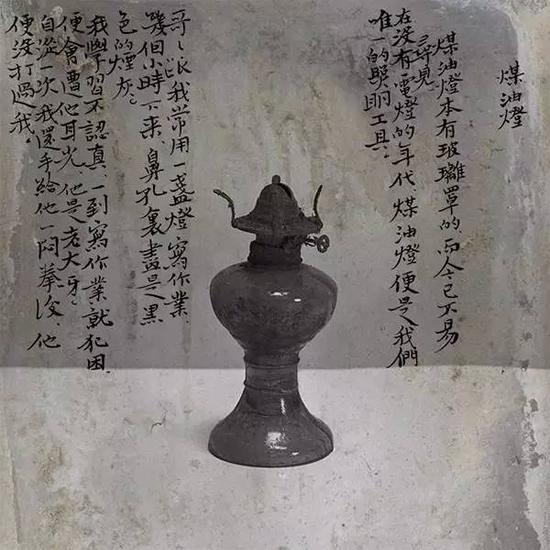 煤油燈
煤油燈本有玻璃罩的,而今已不易
尋見。
在没有電燈的年代,煤油燈便是我們
唯一的照明工具。
哥哥跟我常用一盏燈寫作業,
幾個小時下來,鼻孔裏盡是黑
色的煙灰。
我學習不認真,一到寫作業就犯困,
便會遭他耳光,他是老大呀。
自從一次我還手給他一悶拳後,他
便没打過我。